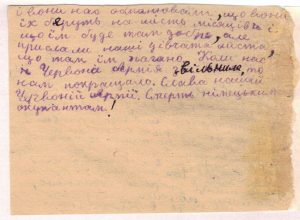 і вони нас обманювали, що вони
їх везуть на шість місяців і
що їм буде там добре, але
прислали наші дівчата листа,
що там їм погано. Коли нас
Червона Армія звільнила, то
нам покращало. Слава нашій
Червоній Армії. Смерть німецьким
окупантам!